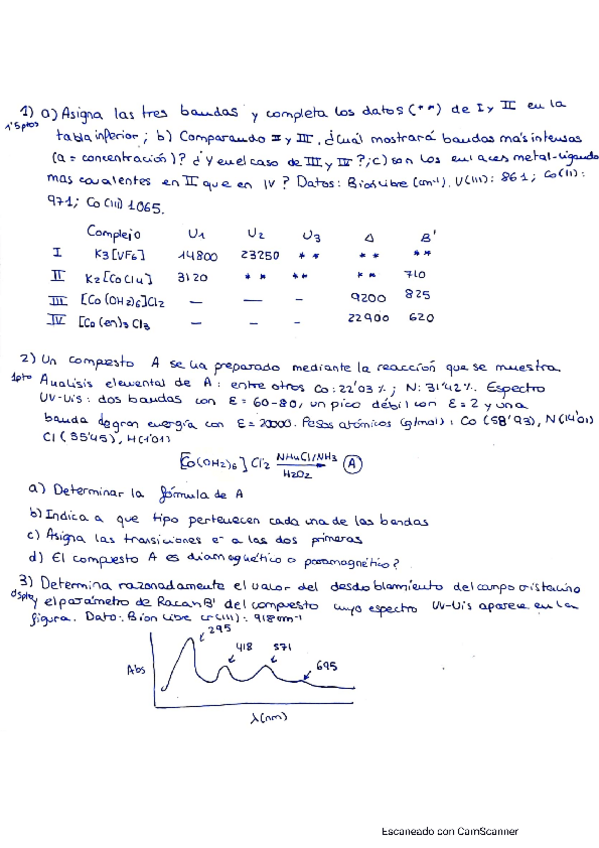 1) a) Asigna las tres bandas y completa los datos (**) de I y II en la
1'5 ptos
tabla inferior; b) Comparando II y III, ¿cuál mostrará bandas más intensas
(a = concentración)? ¿Y en el caso de III y IV?; c) son los enlaces metal-ligando
mas covalentes en II que en IV? Datos: B ion libre (cm⁻¹), V(III): 861; Co(II):
971; Co(III) 1065.
Complejo U1 U2 U3 Δ B'
I K3[VF6] 14800 23250 ** ** **
II K2[CoCl4] 3120 ** ** ** 710
III [Co(OH2)6]Cl2 — — — 9200 825
IV [Co(en)3Cl3 — — — 22900 620
2) Un compuesto A se ha preparado mediante la reacción que se muestra
1pto Analisis elemental de A: entre otros Co: 22'03 %; N: 31'42 %. Espectro
UV-Vis: dos bandas con ε = 60-80, un pico débil con ε = 2 y una
banda de gran energía con ε = 20000. Pesos atómicos (g/mol): Co (58'93), N(14'01)
Cl (35'45), H(1'01)
[Co(OH2)6]Cl2 NH4Cl/NH3 A
H2O2
a) Determinar la fórmula de A
b) Indica a que tipo pertenecen cada una de las bandas
c) Asigna las transiciones e⁻ a las dos primeras
d) El compuesto A es diamagnético o paramagnético?
3) Determina razonadamente el valor del desdoblamiento del campo cristalino
0'5pto y el parámetro de Racah B' del compuesto cuyo espectro UV-Vis aparece en la
figura. Dato: B ion libre Cr(III): 918 cm⁻¹
295
418 571
695
Abs
λ(nm)
Escaneado con CamScanner